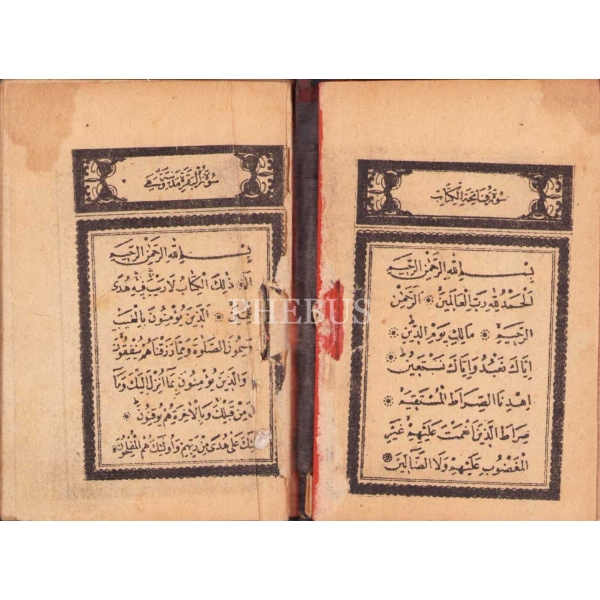 سورة فاتحة الكتاب
بسم الله الرحمن الرحيم
الحمد لله رب العالمين الرحمن
الرحيم مالك يوم الدين
اياك نعبد واياك نستعين
اهدنا الصراط المستقيم
صراط الذين انعمت عليهم غير
المغضوب عليهم ولا الضالين
سورة البقرة مدنية وهي
بسم الله الرحمن الرحيم
ذلك الكتاب لا ريب فيه هدى
الذين يؤمنون بالغيب
الصلوة ومما رزقناهم ينفقون
والذين يؤمنون بما انزل اليك وما
من قبلك وبالاخرة هم يوقنون
على هدى من ربهم واولئك هم المفلحون
PHEBUS